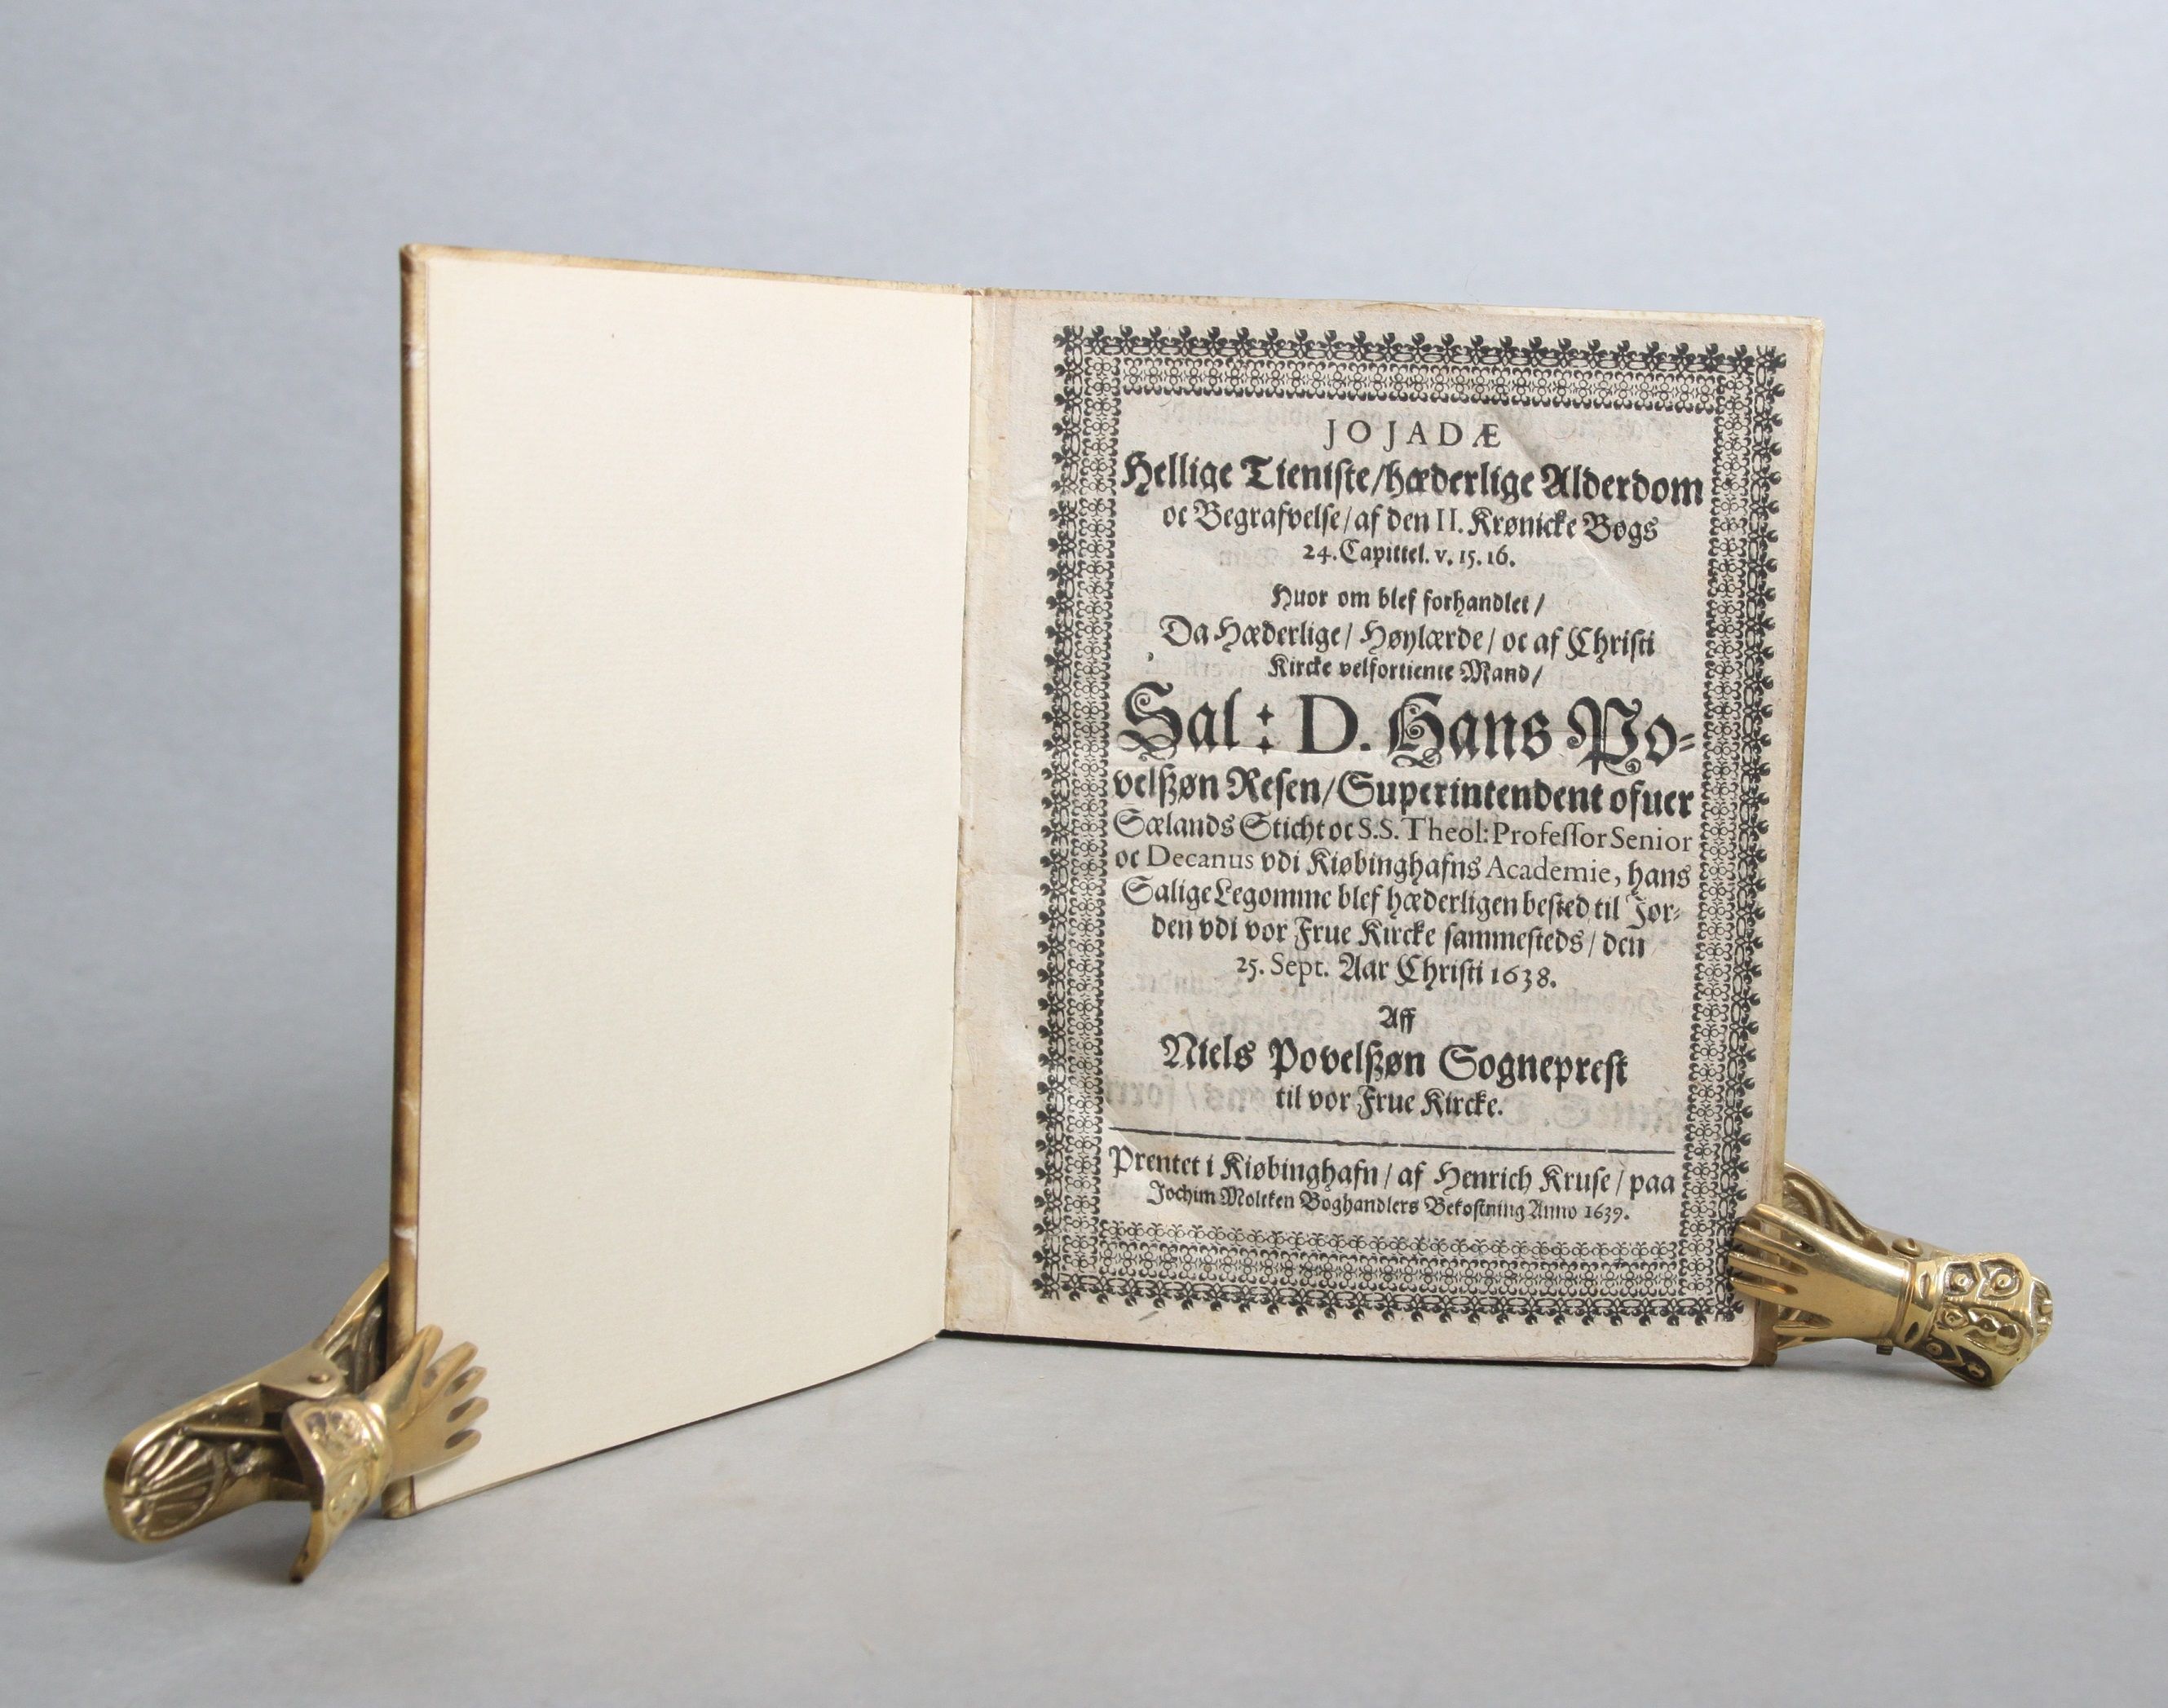 JOJADÆ
Hellige Tieniste/hæderlige Alderdom
oc Begrafvelse/af den II. Krønicke Bogs
24. Capittel. v. 15. 16.
Huor om blef forhandlet/
Da Hæderlige/ Høylærde/ oc af Christi
Kircke velfortiente Mand/
Sal: D. Hans Po-
velßøn Resen/Superintendent ofuer
Sælands Sticht oc S.S. Theol: Professor Senior
oc Decanus vdi Kiøbinghafns Academie, hans
Salige Legomme blef hæderligen bested til Jor-
den vdi vor Frue Kircke sammesteds/ den
25. Sept. Aar Christi 1638.
Aff
Niels Povelßøn Sogneprest
til vor Frue Kircke.
Prentet i Kiøbinghafn/ af Henrich Kruse/ paa
Jochim Moltken Boghandlers Bekostning Anno 1639.